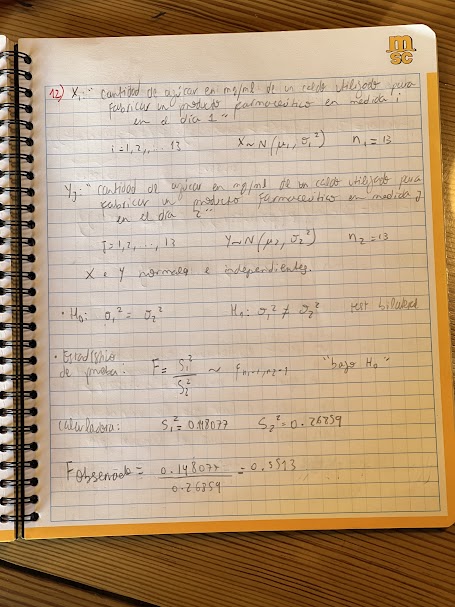 msc
12) Xi: " cantidad de azúcar en mg/ml de un caldo utilizado para
fabricar un producto farmacéutico en medida i
en el día 1 "
i = 1, 2, ... 13 X ~ N(μ₁, σ₁²) n₁ = 13
Yj: " cantidad de azúcar en mg/ml de un caldo utilizado para
fabricar un producto farmacéutico en medida j
en el día 2 "
j = 1, 2, ..., 13 Y ~ N(μ₂, σ₂²) n₂ = 13
X e Y normales e independientes.
• H₀: σ₁² = σ₂² H₁: σ₁² ≠ σ₂² test bilateral
• Estadístico
de prueba: F = S₁² / S₂² ~ f n₁-1, n₂-1 "bajo H₀"
Calculadora: S₁² = 0.148077 S₂² = 0.26859
F observado = 0.148077 / 0.26859 = 0.5513